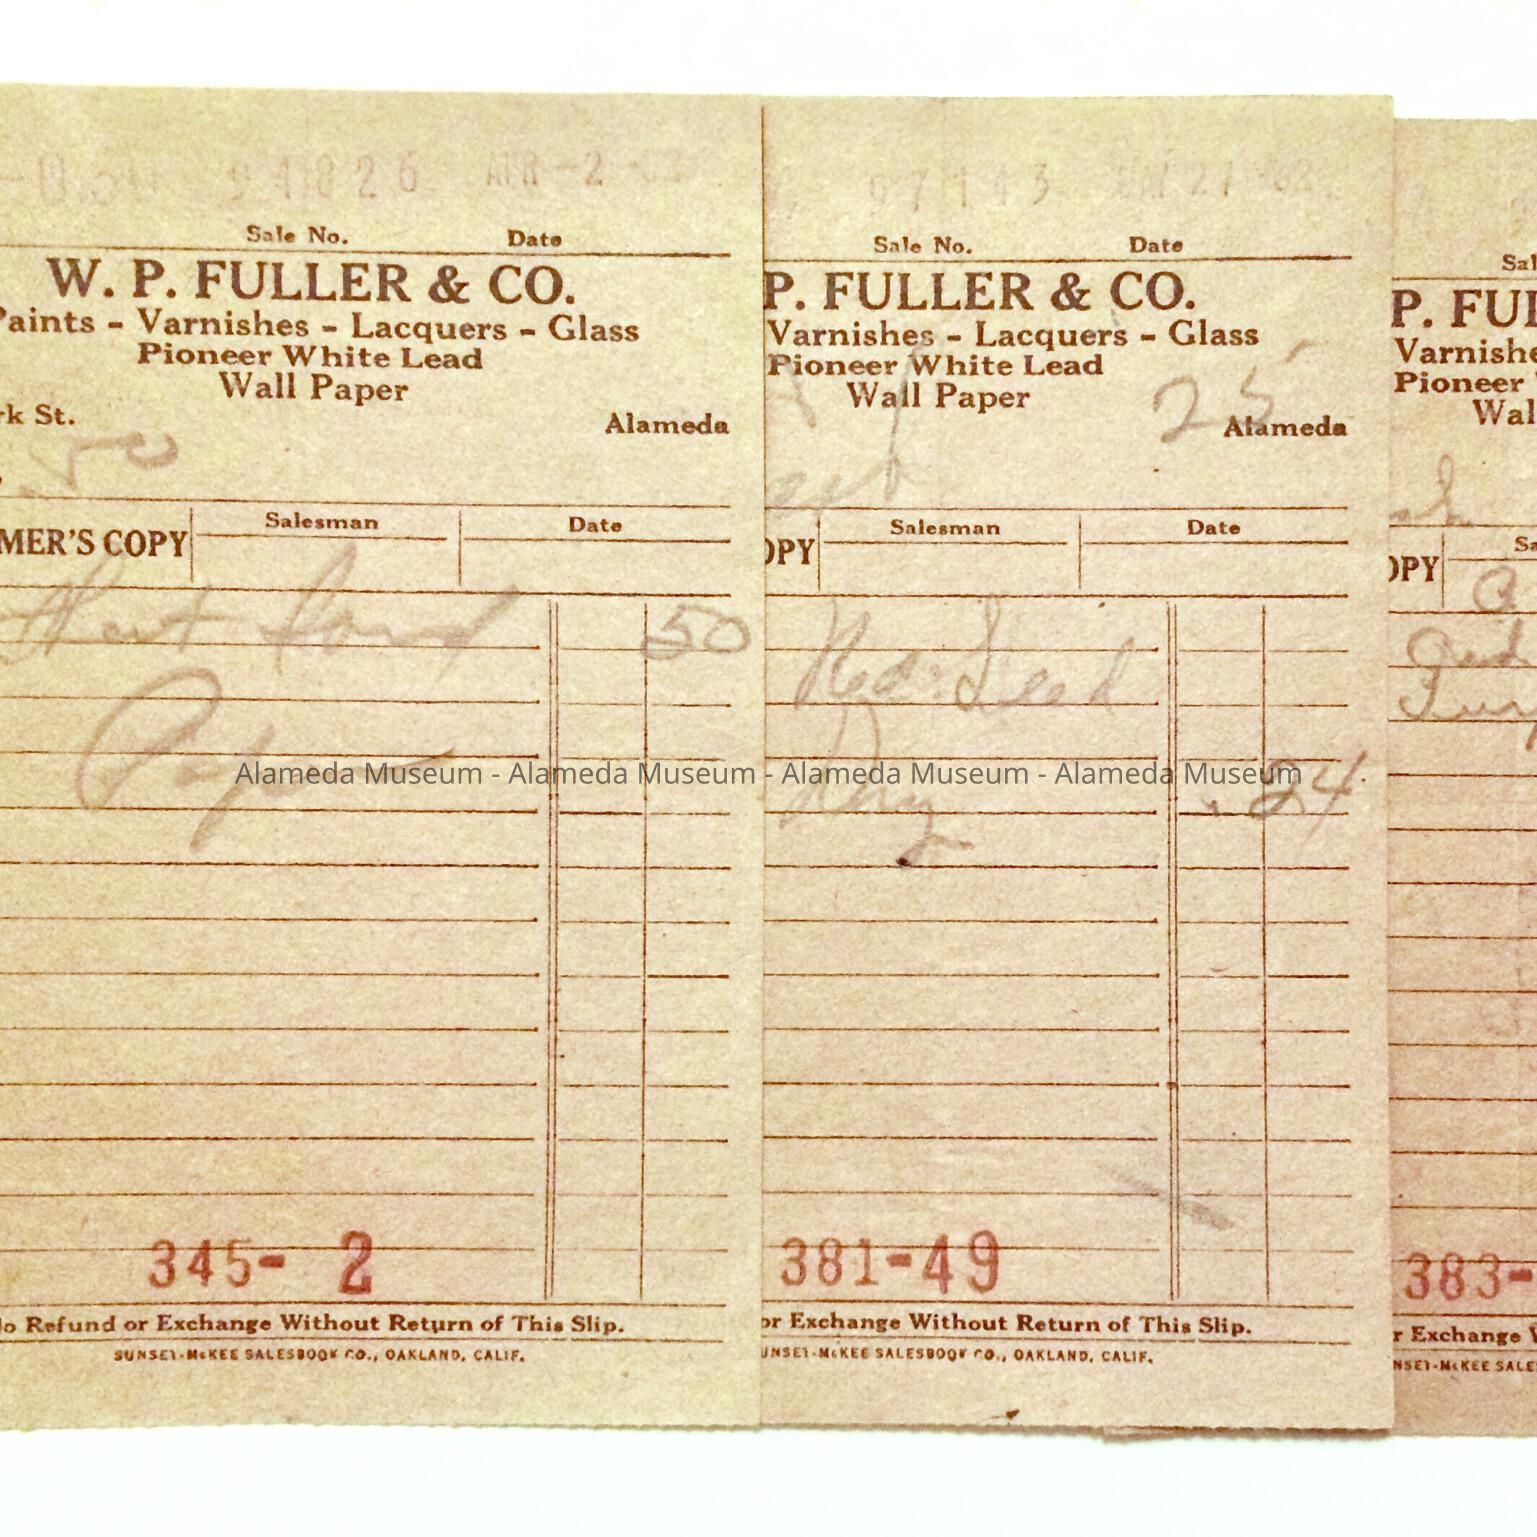 94826 APR -2
Sale No. Date
W. P. FULLER & CO.
Paints - Varnishes - Lacquers - Glass
Pioneer White Lead
Wall Paper
rk St. Alameda
50
MER'S COPY Salesman Date
50
345- 2
No Refund or Exchange Without Return of This Slip.
SUNSET-McKEE SALESBOOK CO., OAKLAND, CALIF.
97143
Sale No. Date
P. FULLER & CO.
Varnishes - Lacquers - Glass
Pioneer White Lead
Wall Paper
25
Alameda
OPY Salesman Date
Red Lead
Dry .24
381-49
or Exchange Without Return of This Slip.
UNSET-McKEE SALESBOOK CO., OAKLAND, CALIF.
Sal
P. FUL
Varnishe
Pioneer
Wal
OPY Sa
383-
r Exchange W
NSET-McKEE SALE
Alameda Museum - Alameda Museum - Alameda Museum - Alameda Museum